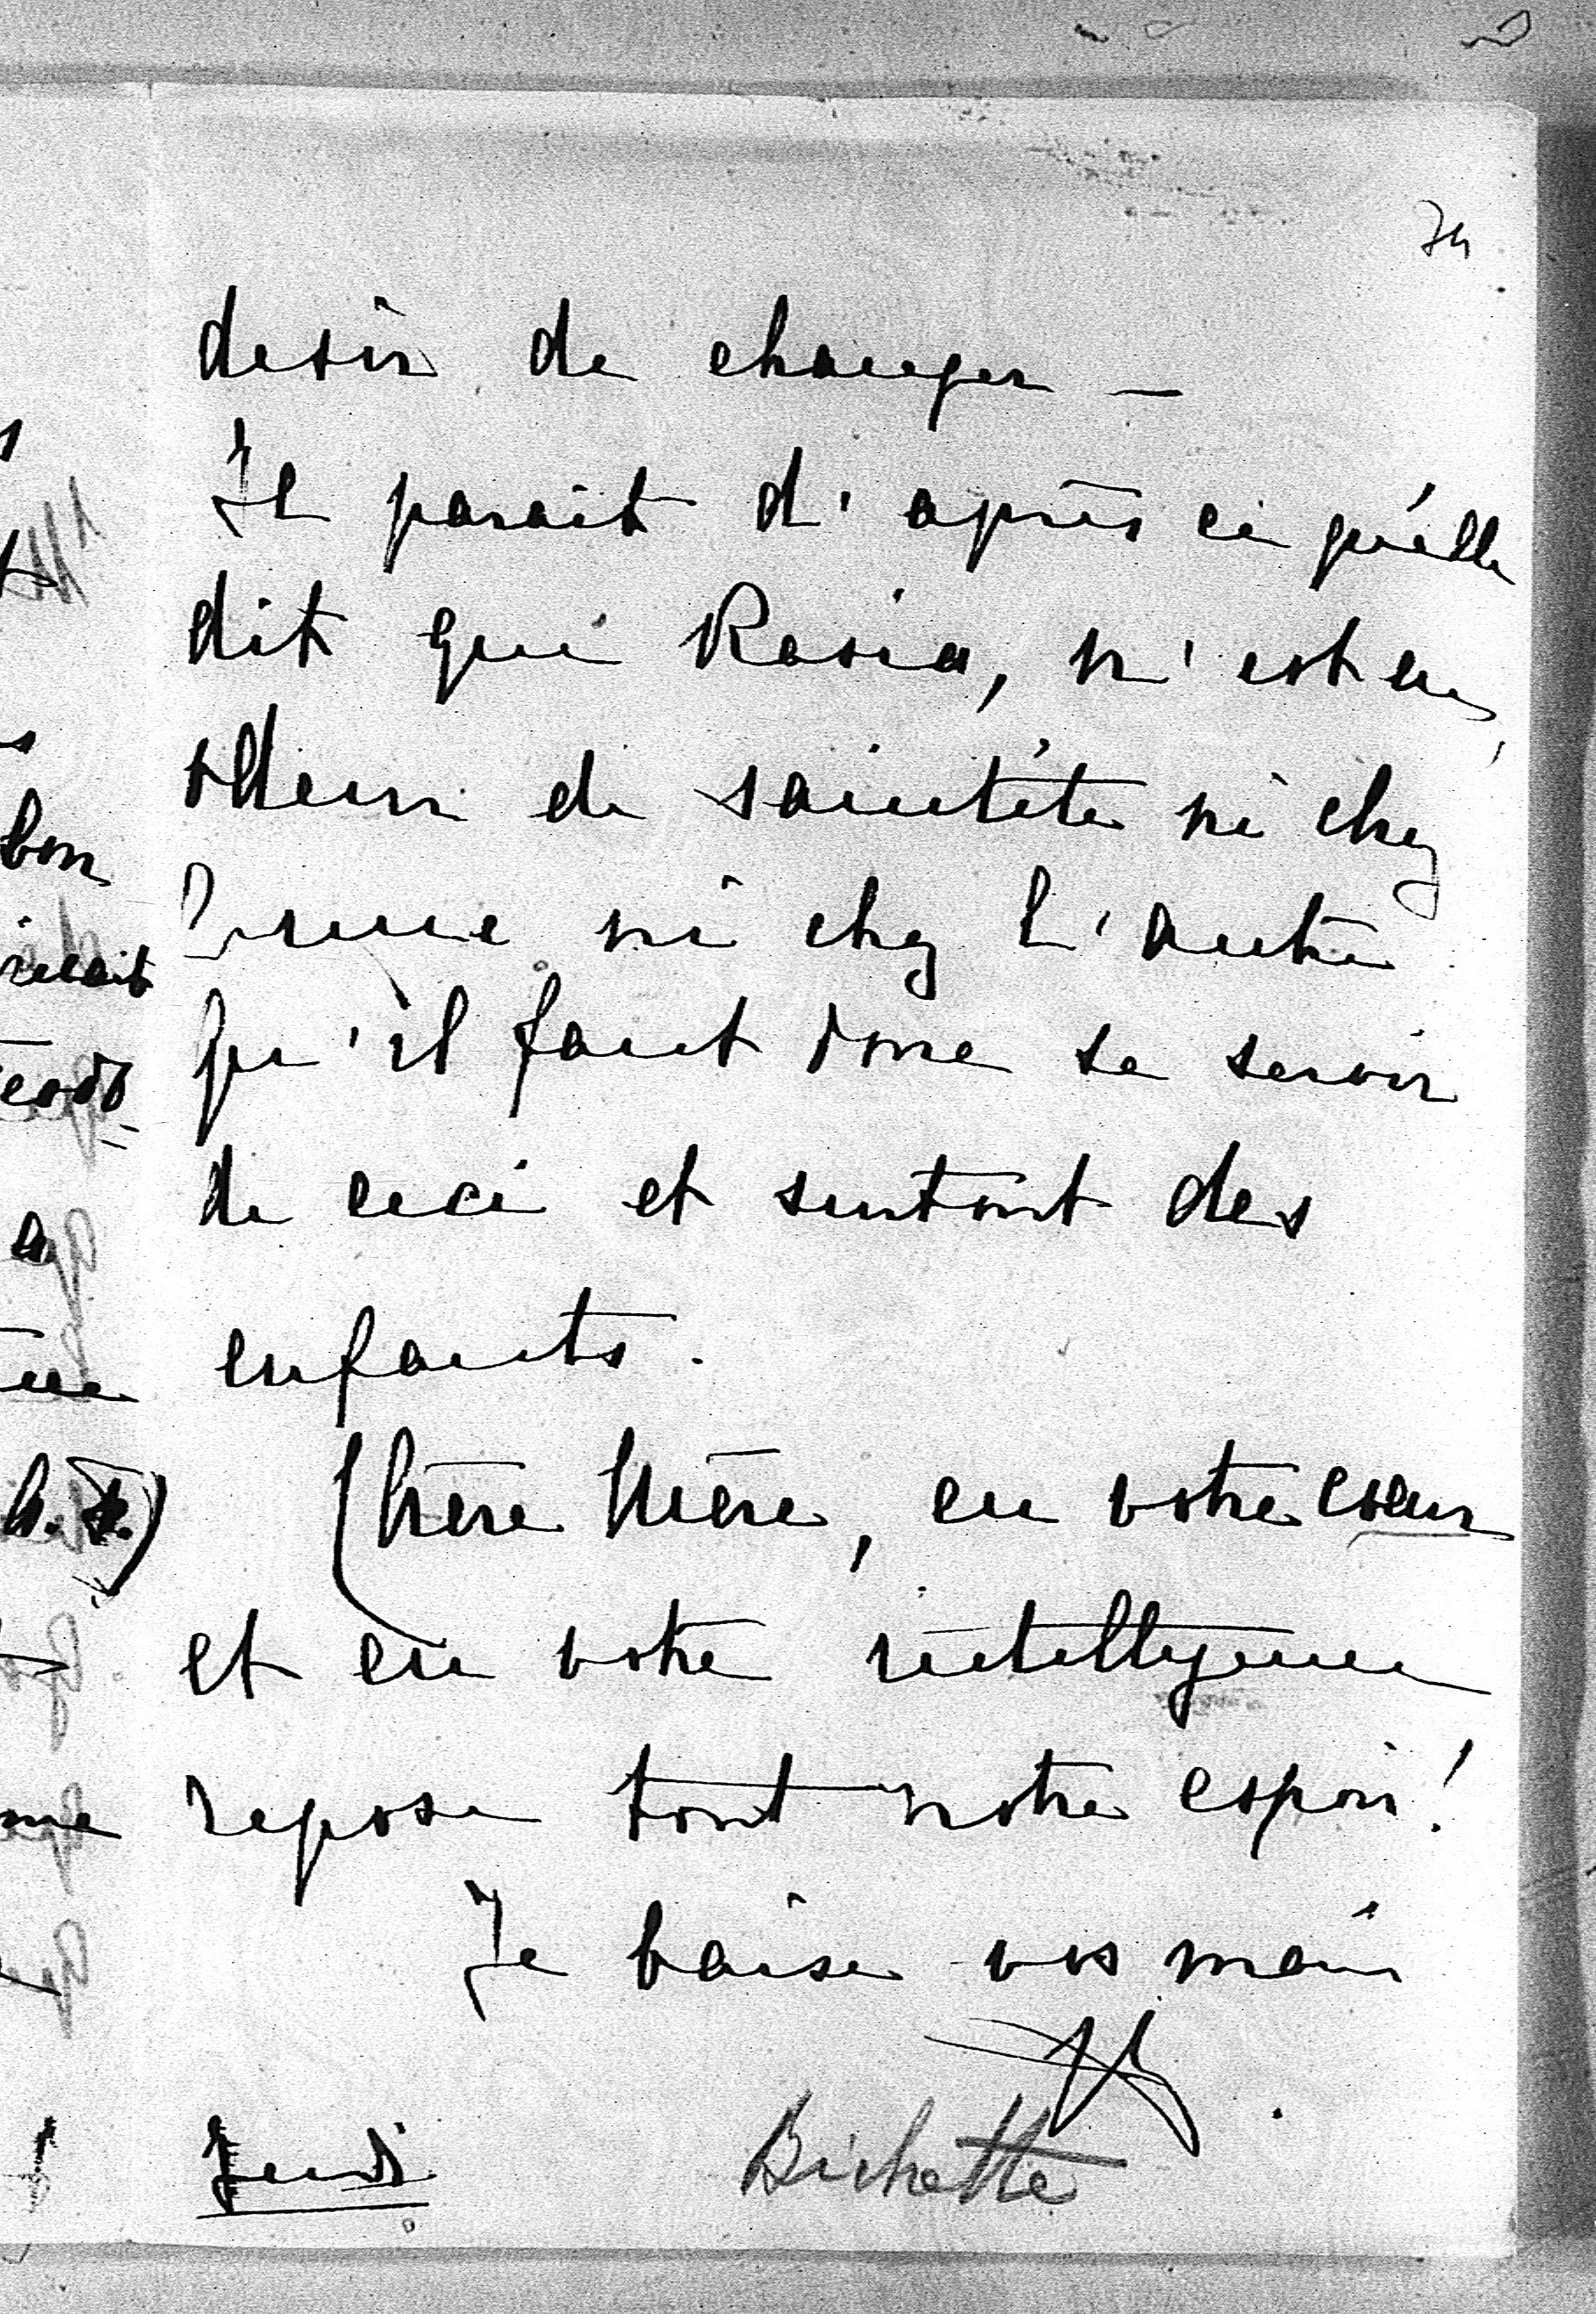 74
desir de changer —
Il parait d'après ce qu'elle
dit que Rosia, n'est en
odeur de sainteté ni chez
l'une ni chez l'autre
qu'il faut donc se servir
de ceci et surtout des
enfants.
Chère Mère, en votre coeur
et en votre intelligence
repose tout notre espoir!
Je baise vos main
Jeudi
Bichette
bon